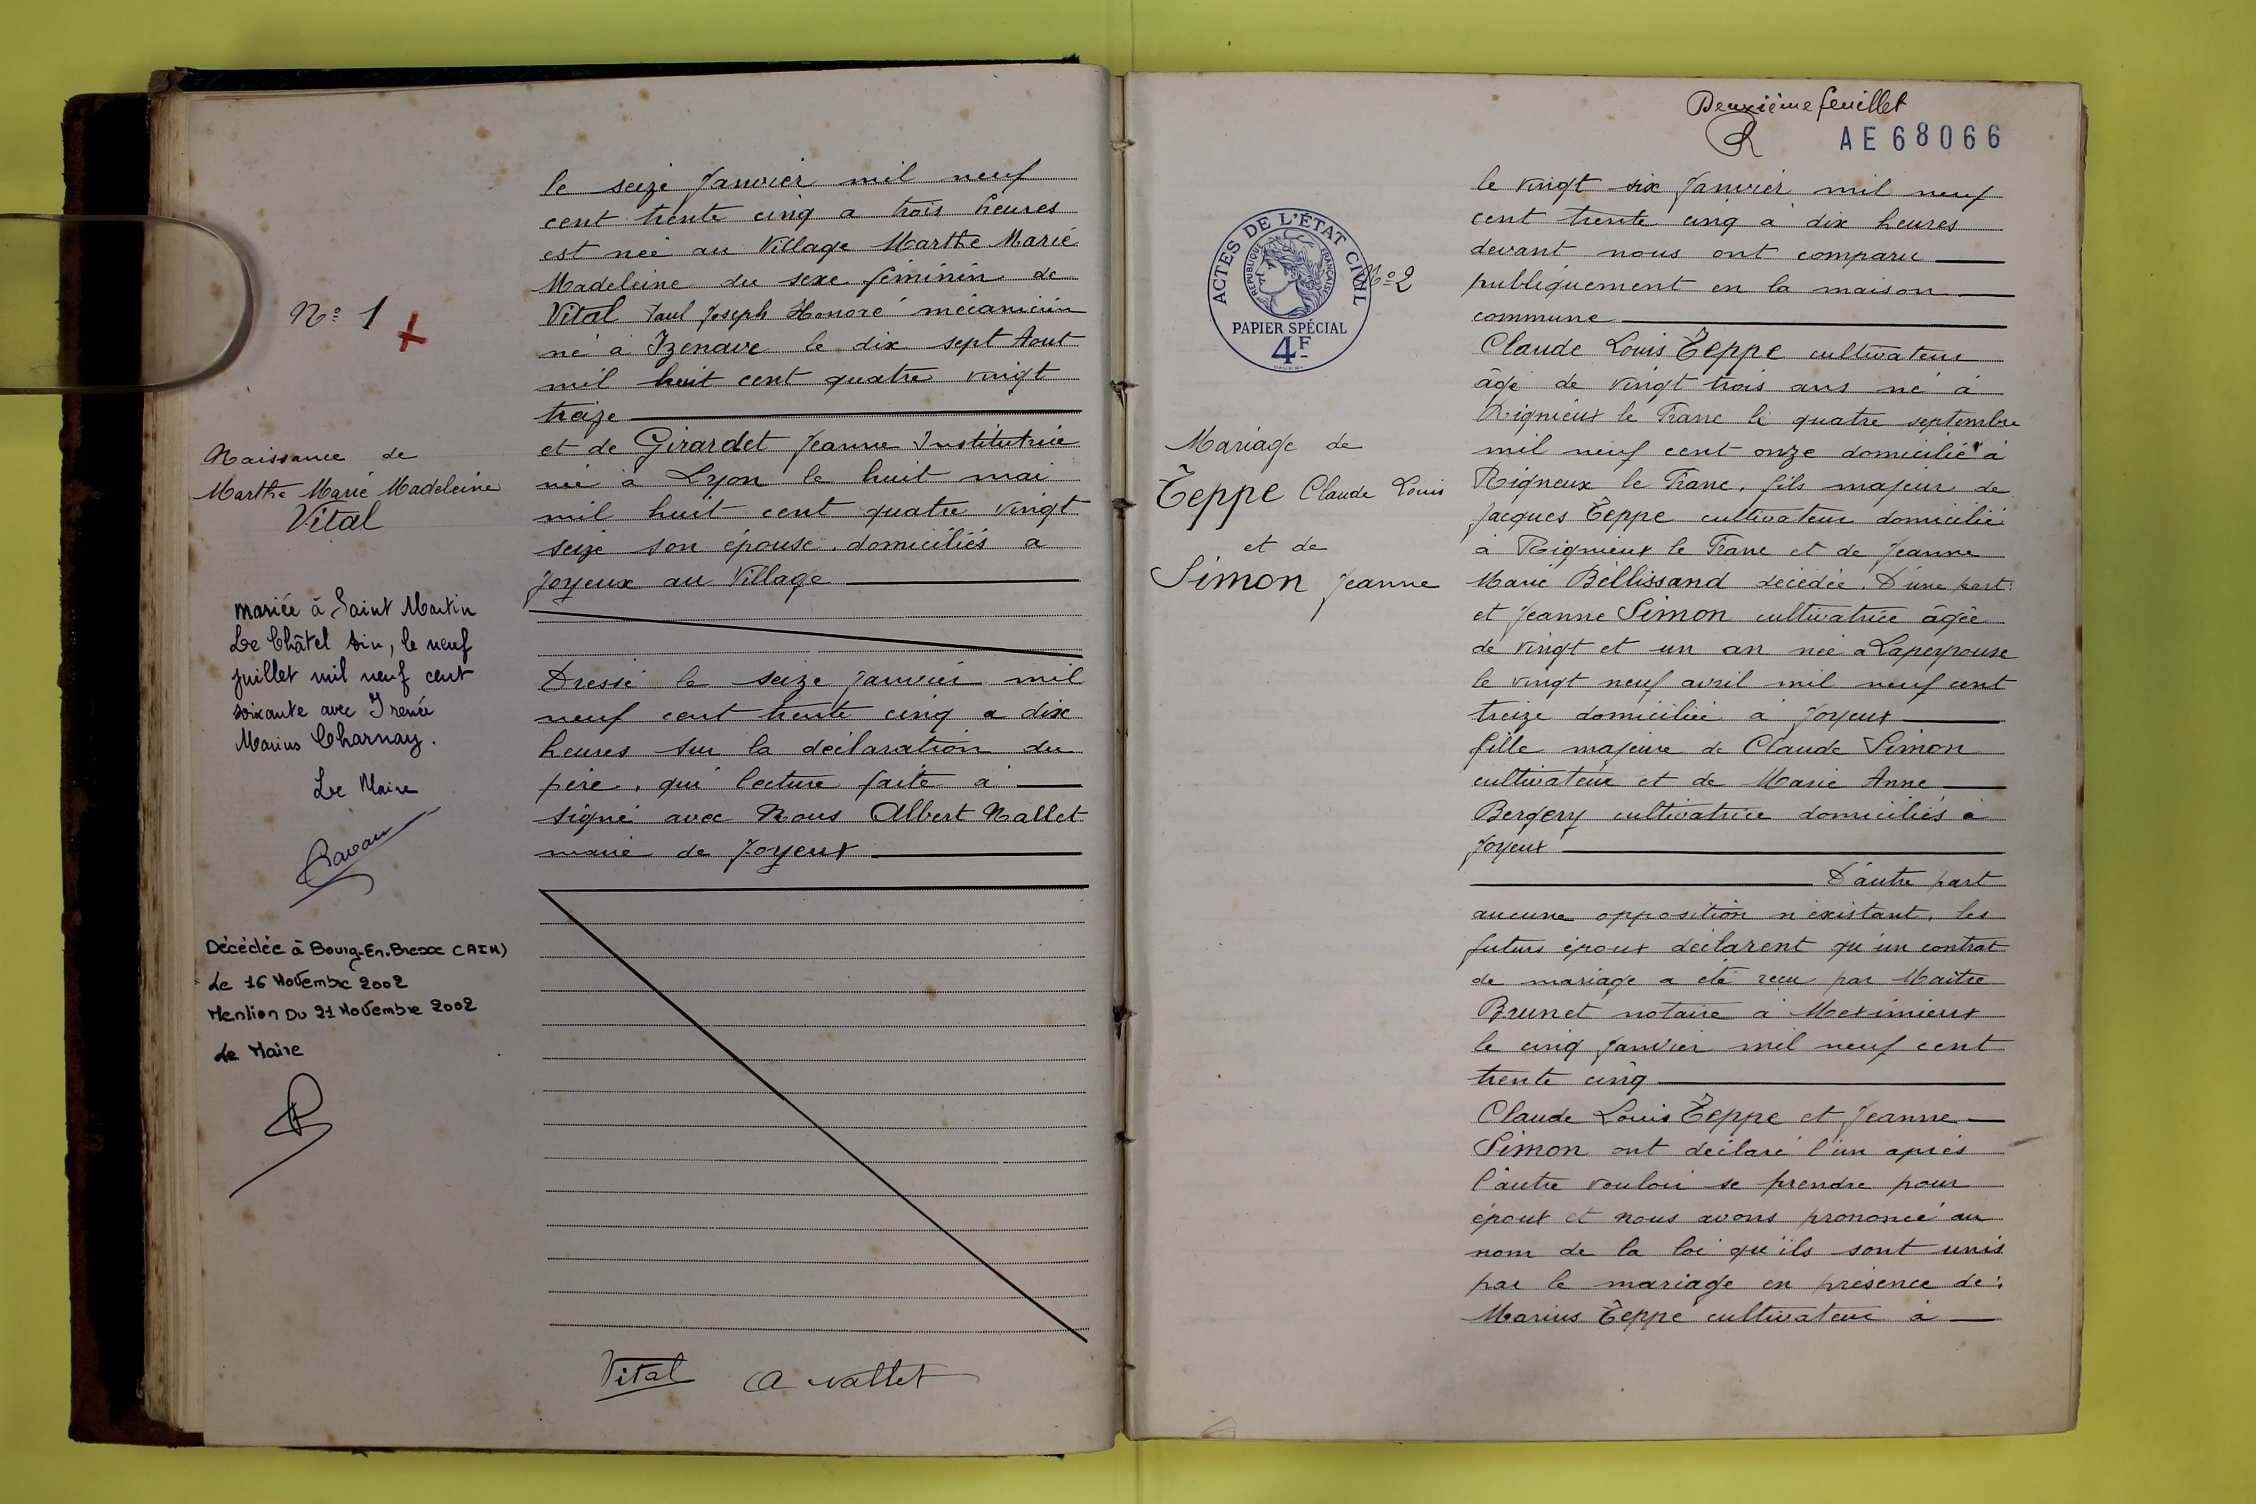 N° 1
Naissance de
Marthe Marie Madeleine
Vital
mariée à Saint Martin
Le Châtel Ain, le neuf
juillet mil neuf cent
soixante avec Irenée
Marius Charnay.
Le Maire
Décédée à Bourg-En-Bresse (AIN)
Le 16 Novembre 2002
Mention Du 21 Novembre 2002
Le Maire
le seize Janvier mil neuf
cent trente cinq a trois heures
est née au Village Marthe Marie
Madeleine du sexe féminin de
Vital Paul Joseph Honoré mécanicien
né à Izenave le dix sept Aout
mil huit cent quatre vingt
treize
et de Girardet Jeanne Institutrice
née à Lyon le huit mai
mil huit cent quatre vingt
seize son épouse. domiciliés a
Joyeux au Village
Dressé le seize Janvier mil
neuf cent trente cinq a dix
heures sur la déclaration du
père, qui lecture faite a
signé avec Nous Albert Nallet
maire de Joyeux
Vital A Nallet
Deuxième feuillet
AE68066
ACTES DE L'ÉTAT CIVIL
RÉPUBLIQUE FRANÇAISE
PAPIER SPÉCIAL
4F
N° 2
Mariage de
Teppe Claude Louis
et de
Simon Jeanne
le vingt six Janvier mil neuf
cent trente cinq à dix heures
devant nous ont comparu
publiquement en la maison
commune
Claude Louis Teppe cultivateur
âgé de vingt trois ans né à
Rignieux le Franc le quatre septembre
mil neuf cent onze domicilié à
Rigneux le Franc, fils majeur de
Jacques Teppe cultivateur domicilié
à Rignieux le Franc et de Jeanne
Marie Bellissand décédée. D'une part.
et Jeanne Simon cultivatrice âgée
de vingt et un an née a Lapeyrouse
le vingt neuf avril mil neuf cent
treize domiciliée à Joyeux
fille majeure de Claude Simon
cultivateur et de Marie Anne
Bergery cultivatrice domiciliés à
Joyeux
D'autre part
aucune opposition n'existant, les
futurs époux déclarent qu'un contrat
de mariage a été reçu par Maitre
Brunet notaire à Meximieux
le cinq Janvier mil neuf cent
trente cinq
Claude Louis Teppe et Jeanne
Simon ont déclaré l'un après
l'autre vouloir se prendre pour
époux et nous avons prononcé au
nom de la loi qu'ils sont unis
par le mariage en présence de:
Marius Teppe cultivateur à